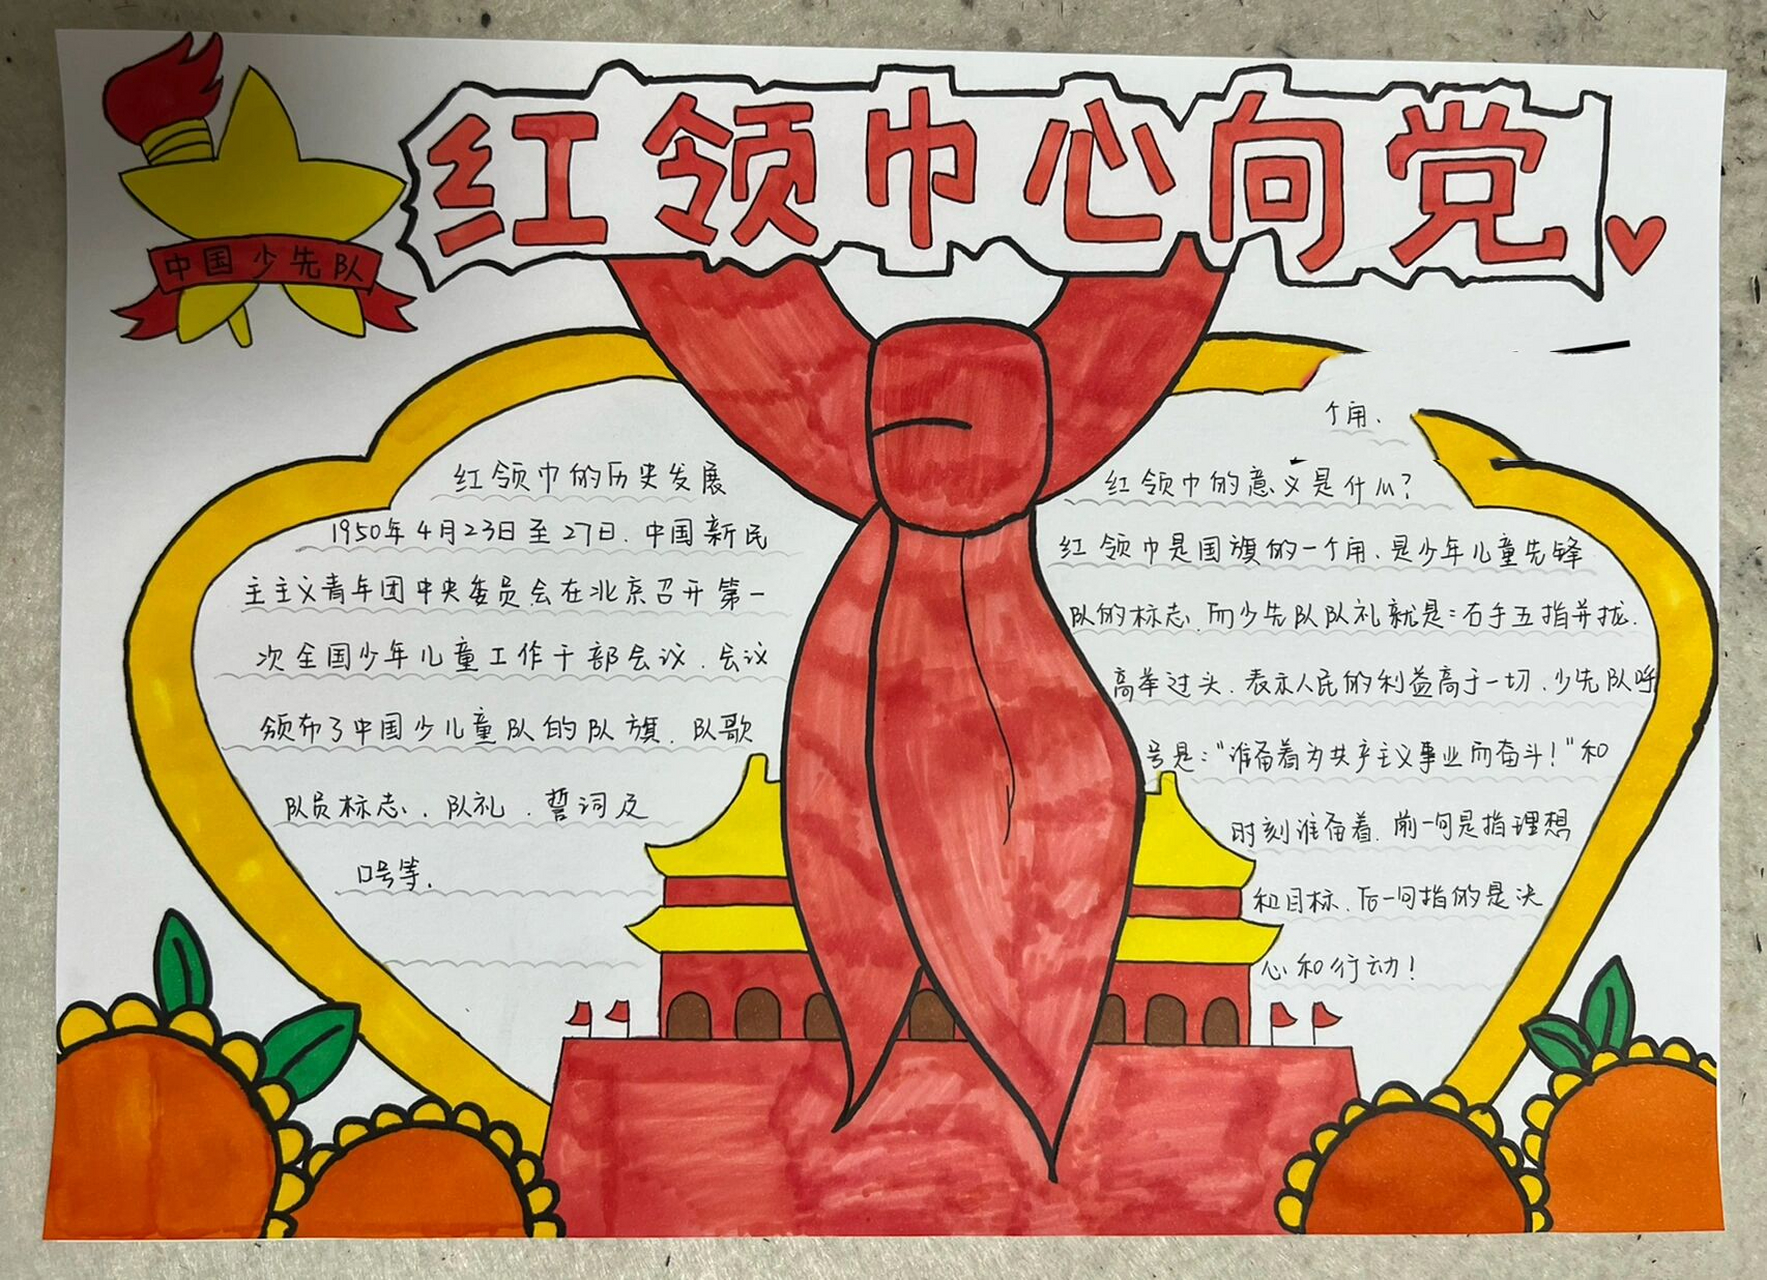 红领巾心向党
中国少先队
红领巾的历史发展
1950年4月23日至27日.中国新民
主主义青年团中央委员会在北京召开第一
次全国少年儿童工作干部会议.会议
颁布了中国少儿童队的队旗.队歌
队员标志.队礼.誓词及
口号等.
个角.
红领巾的意义是什么?
红领巾是国旗的一个角.是少年儿童先锋
队的标志.而少先队队礼就是:右手五指并拢.
高举过头.表示人民的利益高于一切.少先队呼
号是:"准备着为共产主义事业而奋斗!"和
时刻准备着.前一句是指理想
和目标.后一句指的是决
心和行动!